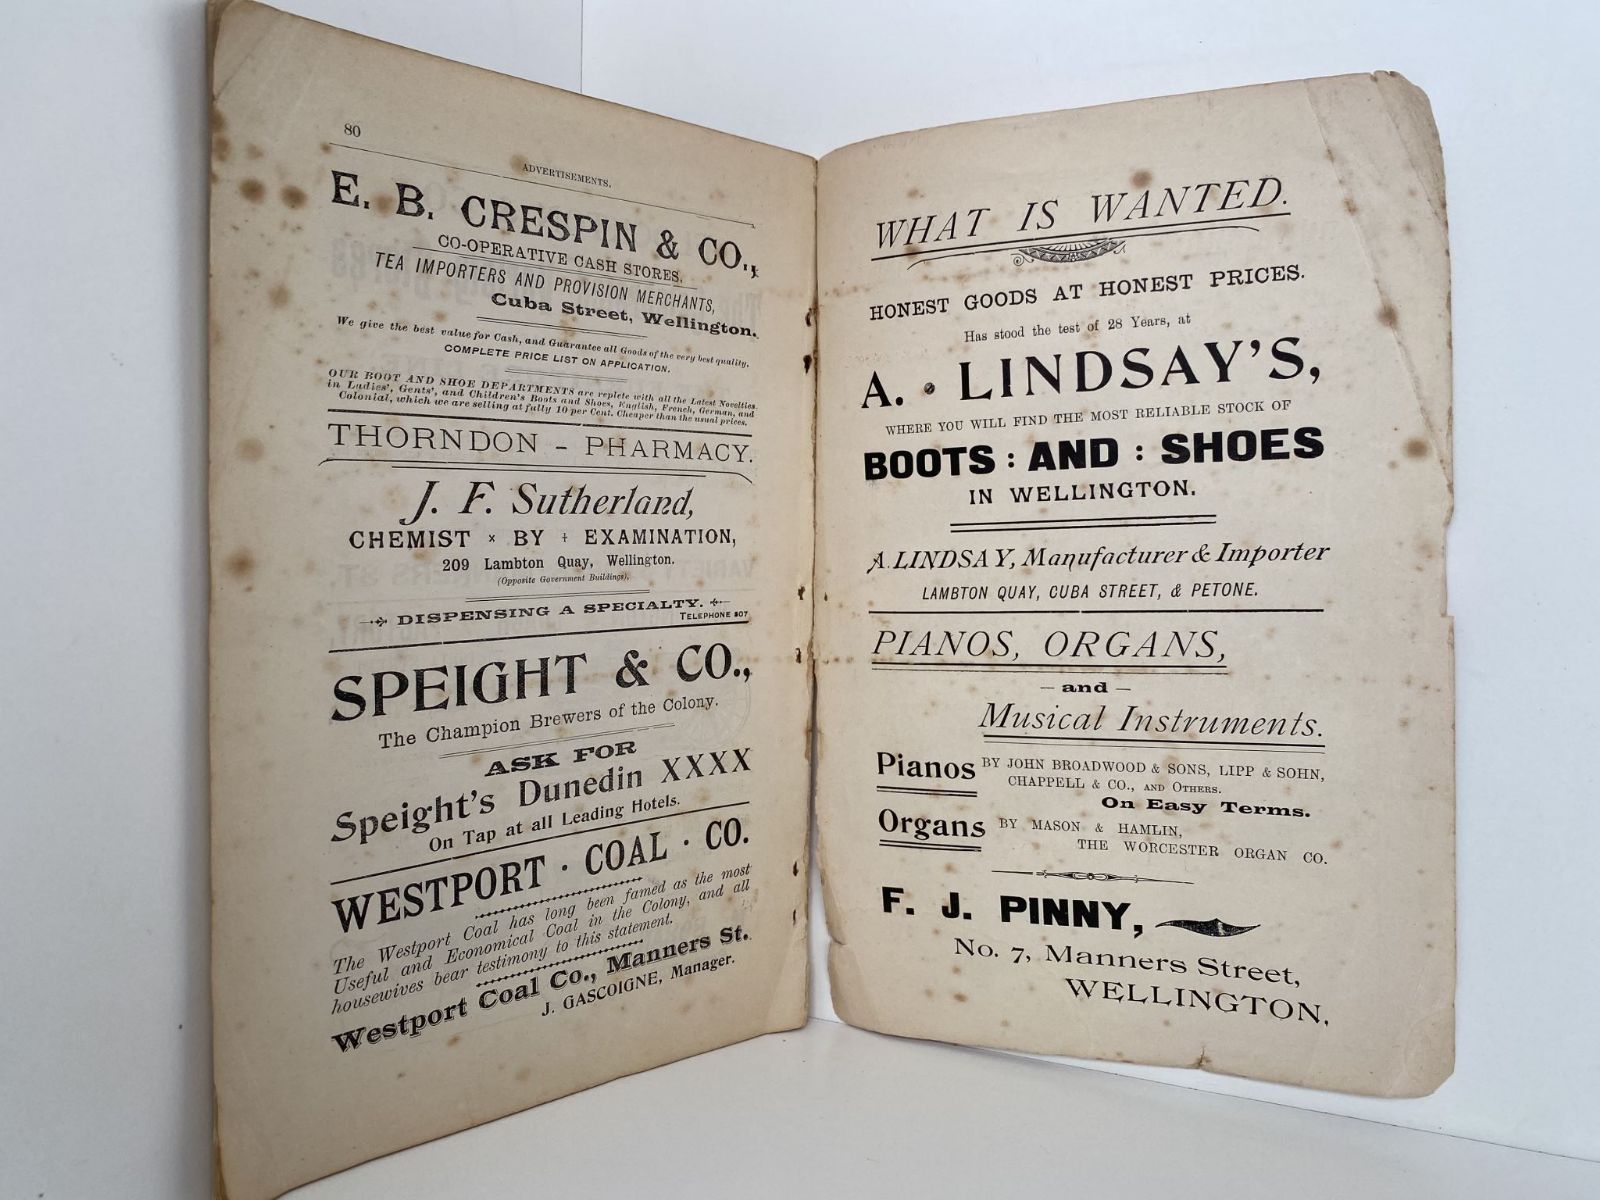 80
ADVERTISEMENTS.
E. B. CRESPIN & CO.,
CO-OPERATIVE CASH STORES.
TEA IMPORTERS AND PROVISION MERCHANTS,
Cuba Street, Wellington.
We give the best value for Cash, and Guarantee all Goods of the very best quality.
COMPLETE PRICE LIST ON APPLICATION.
OUR BOOT AND SHOE DEPARTMENTS are replete with all the Latest Novelties
in Ladies', Gents', and Children's Boots and Shoes, English, French, German, and
Colonial, which we are selling at fully 10 per Cent. Cheaper than the usual prices.
THORNDON - PHARMACY.
J. F. Sutherland,
CHEMIST × BY + EXAMINATION,
209 Lambton Quay, Wellington.
(Opposite Government Buildings).
DISPENSING A SPECIALTY.
TELEPHONE 807
SPEIGHT & CO.,
The Champion Brewers of the Colony.
ASK FOR
Speight's Dunedin XXXX
On Tap at all Leading Hotels.
WESTPORT · COAL · CO.
The Westport Coal has long been famed as the most
Useful and Economical Coal in the Colony, and all
housewives bear testimony to this statement.
Westport Coal Co., Manners St.
J. GASCOIGNE, Manager.
WHAT IS WANTED.
HONEST GOODS AT HONEST PRICES.
Has stood the test of 28 Years, at
A. LINDSAY'S,
WHERE YOU WILL FIND THE MOST RELIABLE STOCK OF
BOOTS : AND : SHOES
IN WELLINGTON.
A. LINDSAY, Manufacturer & Importer
LAMBTON QUAY, CUBA STREET, & PETONE.
PIANOS, ORGANS,
— and —
Musical Instruments.
Pianos BY JOHN BROADWOOD & SONS, LIPP & SOHN,
CHAPPELL & CO., AND OTHERS.
On Easy Terms.
Organs BY MASON & HAMLIN,
THE WORCESTER ORGAN CO.
F. J. PINNY,
No. 7, Manners Street,
WELLINGTON.